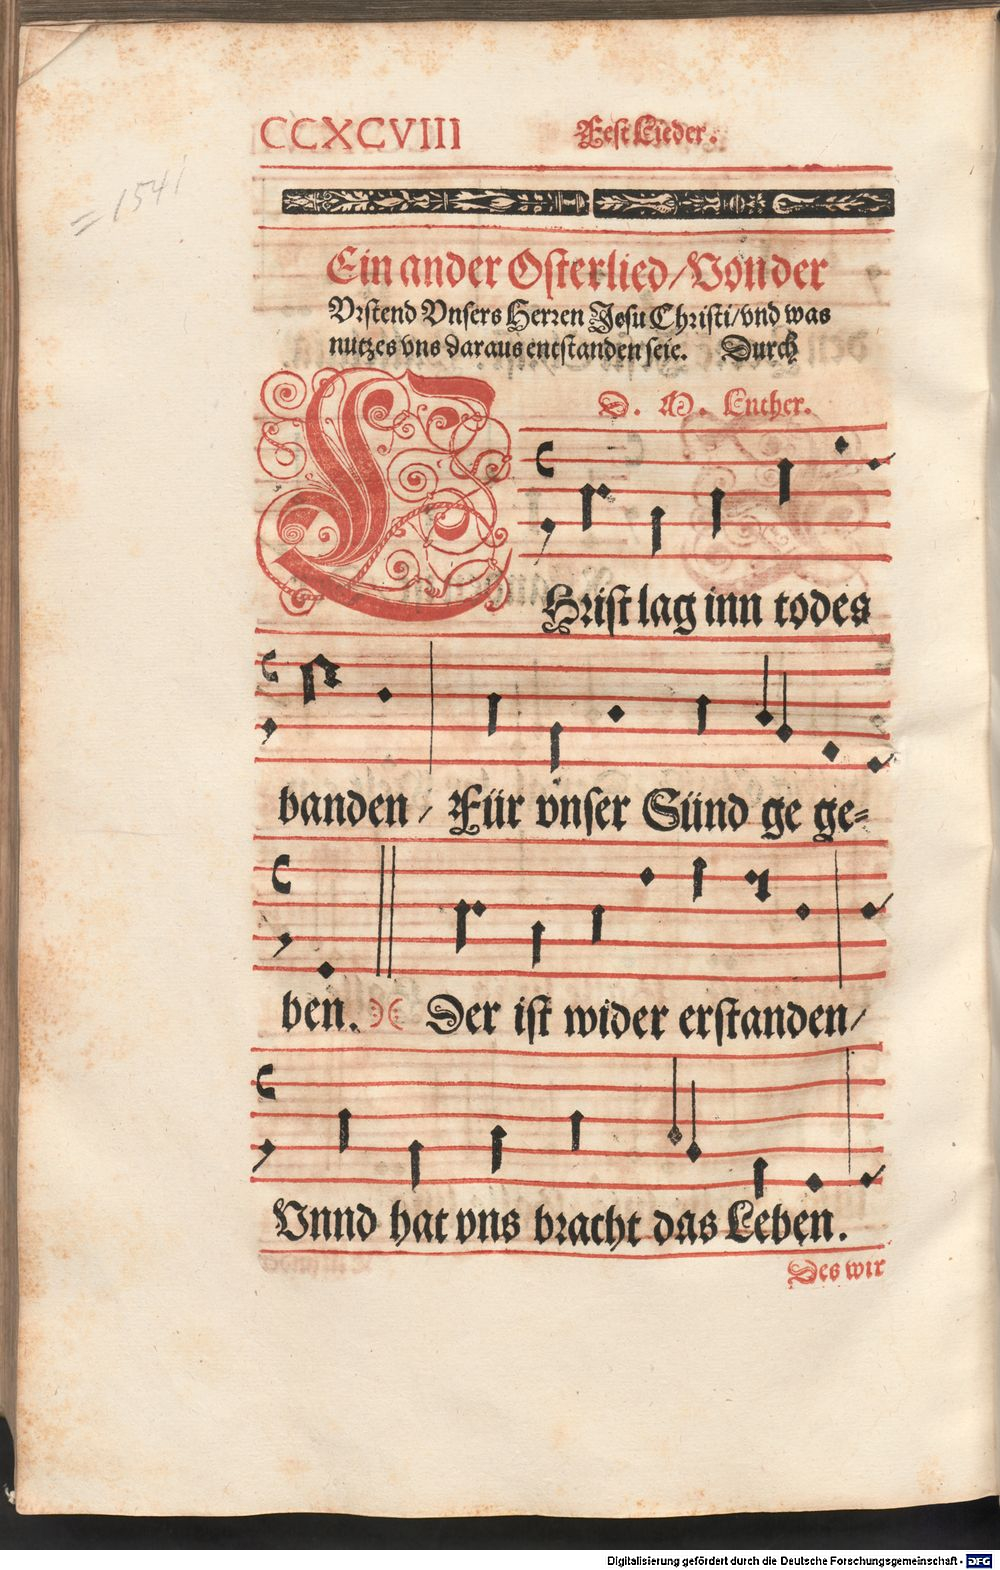 CCXCVIII Fest Lieder.
= 1541
Ein ander Osterlied/Von der
Vrstend Vnsers Herren Jesu Christi/vnd was
nutzes vns daraus entstanden seie. Durch
D. M. Luther.
CHrist lag inn todes
banden / Für vnser Sünd ge ge=
ben. Der ist wider erstanden/
Vnnd hat vns bracht das Leben.
Des wir
Digitalisierung gefördert durch die Deutsche Forschungsgemeinschaft - DFG